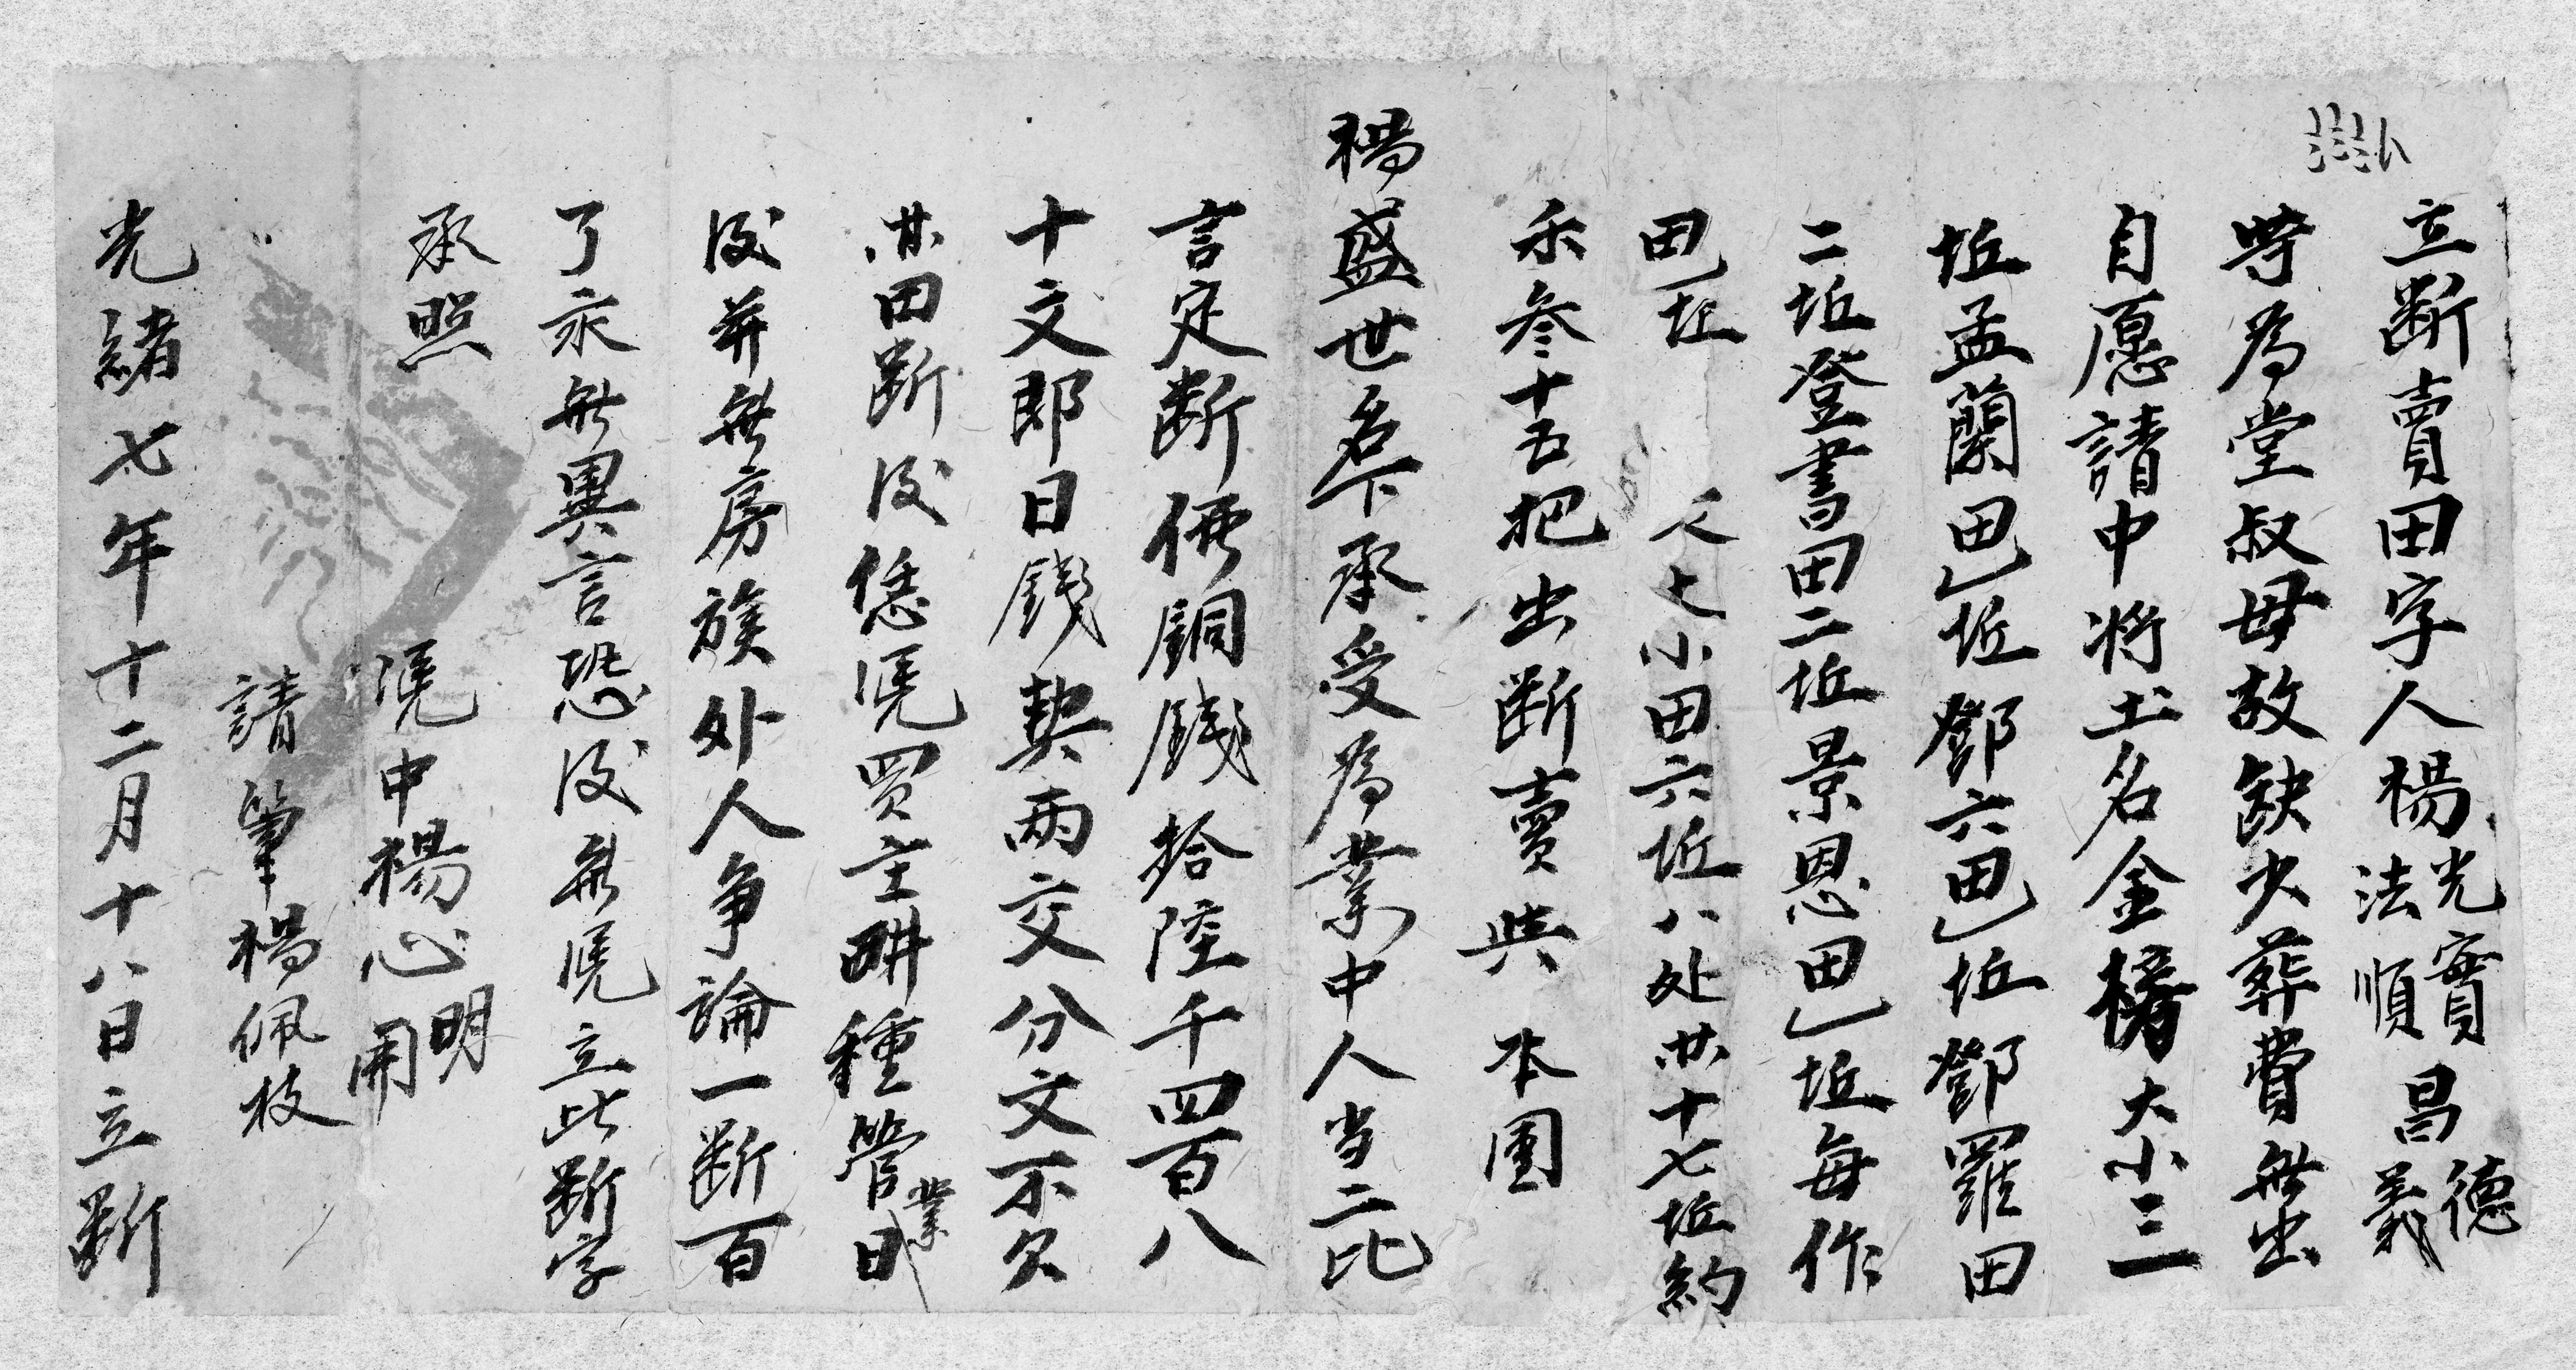 立断賣田字人楊光寶昌德法順義
時為堂叔母故缺少葬費無出
自愿請中将土名金榜大小三
坵孟蘭田乚坵鄧六田乚坵鄧羅田
二坵登書田二坵景恩田乚坵每作
田乚坵 又土小田六坵八处共十七坵約
禾叁十五把出断賣與 本團
楊盛世名下承受為業中人当二比
言定断價銅錢拾陸千四百八
十文即日錢契兩交分文不欠
其田断後恁凴買主畊種管業日
後并無房族外人争論一断百
了永無異言恐後無凴立此断字
承照
凴中楊心明開
請筆楊佩枝
光緒七年十二月十八日立断